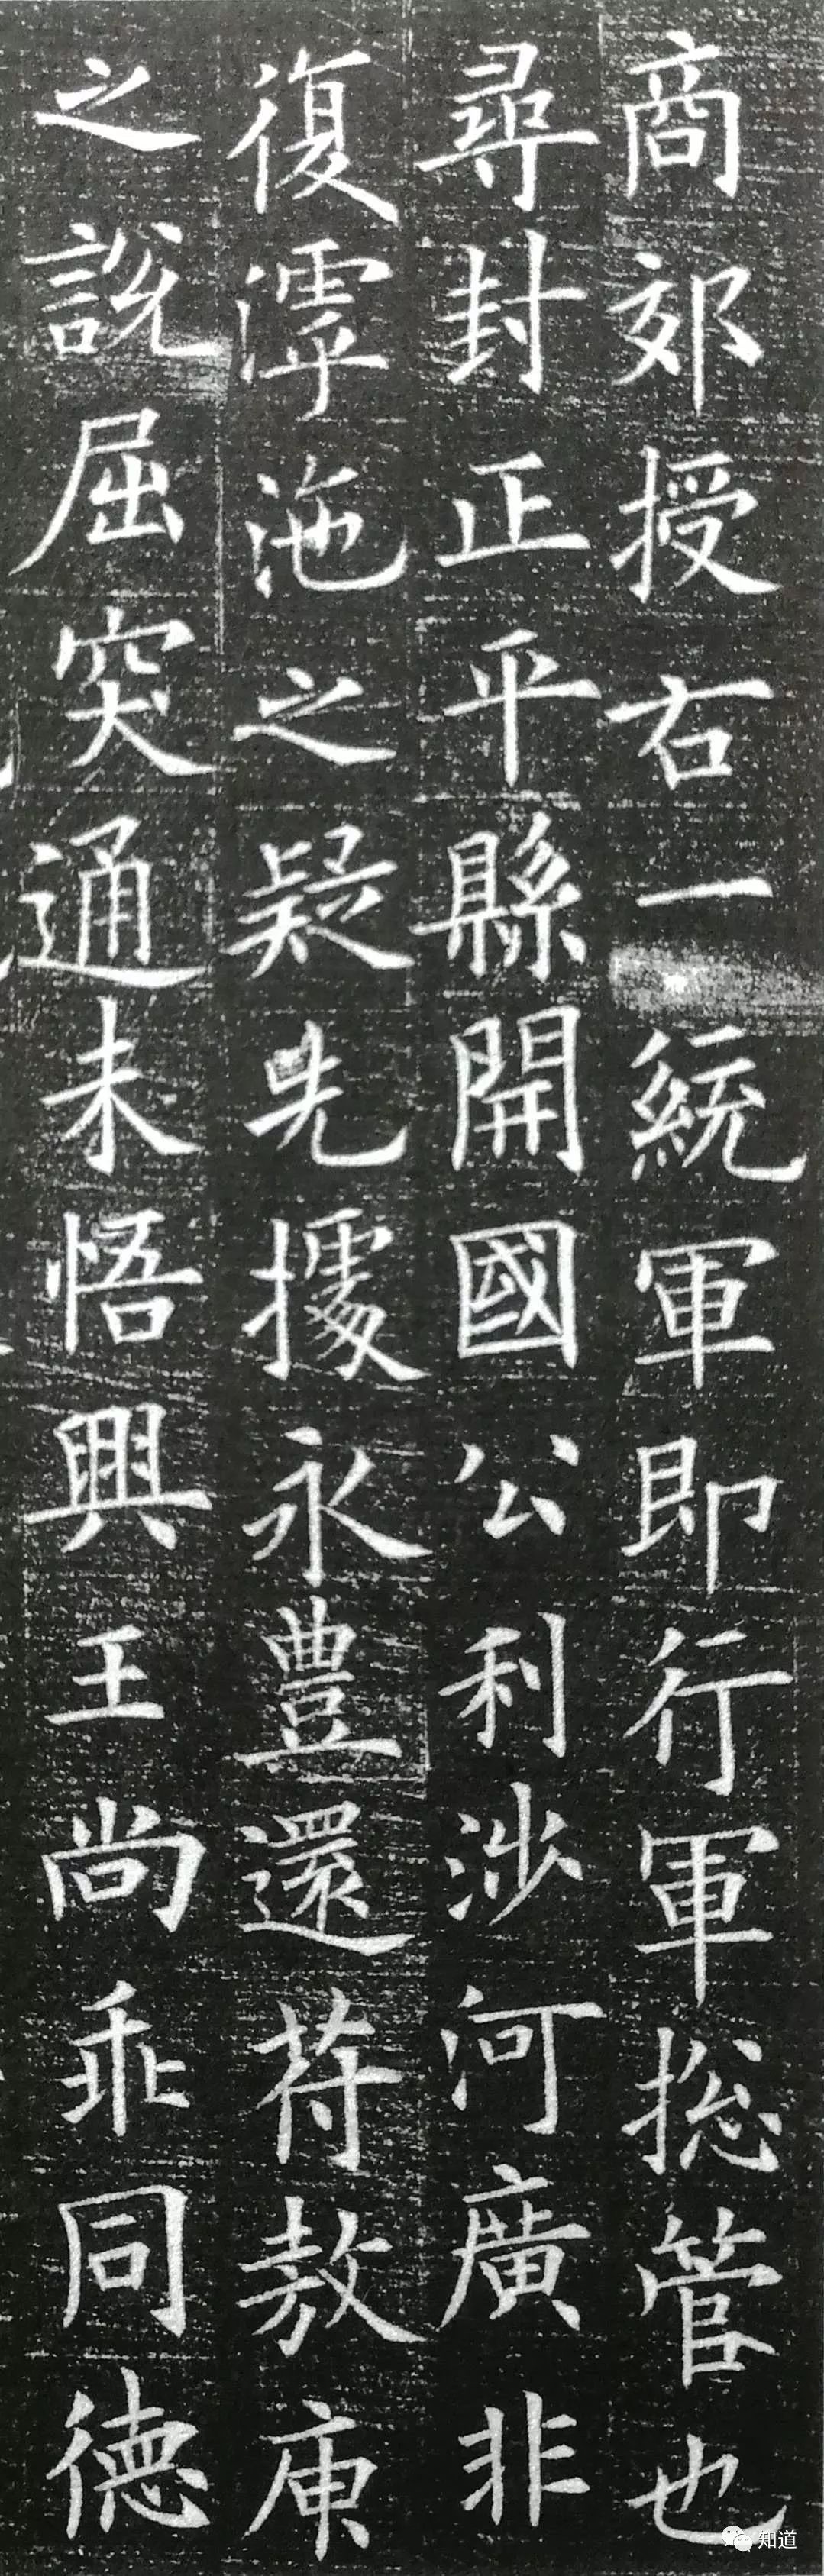 商郊授右一統軍即行軍揔管也
尋封正平縣開國公利涉河廣非
復滹沲之疑先據永豊還苻敖庾
之說屈突通未悟興王尚乖同德
知道